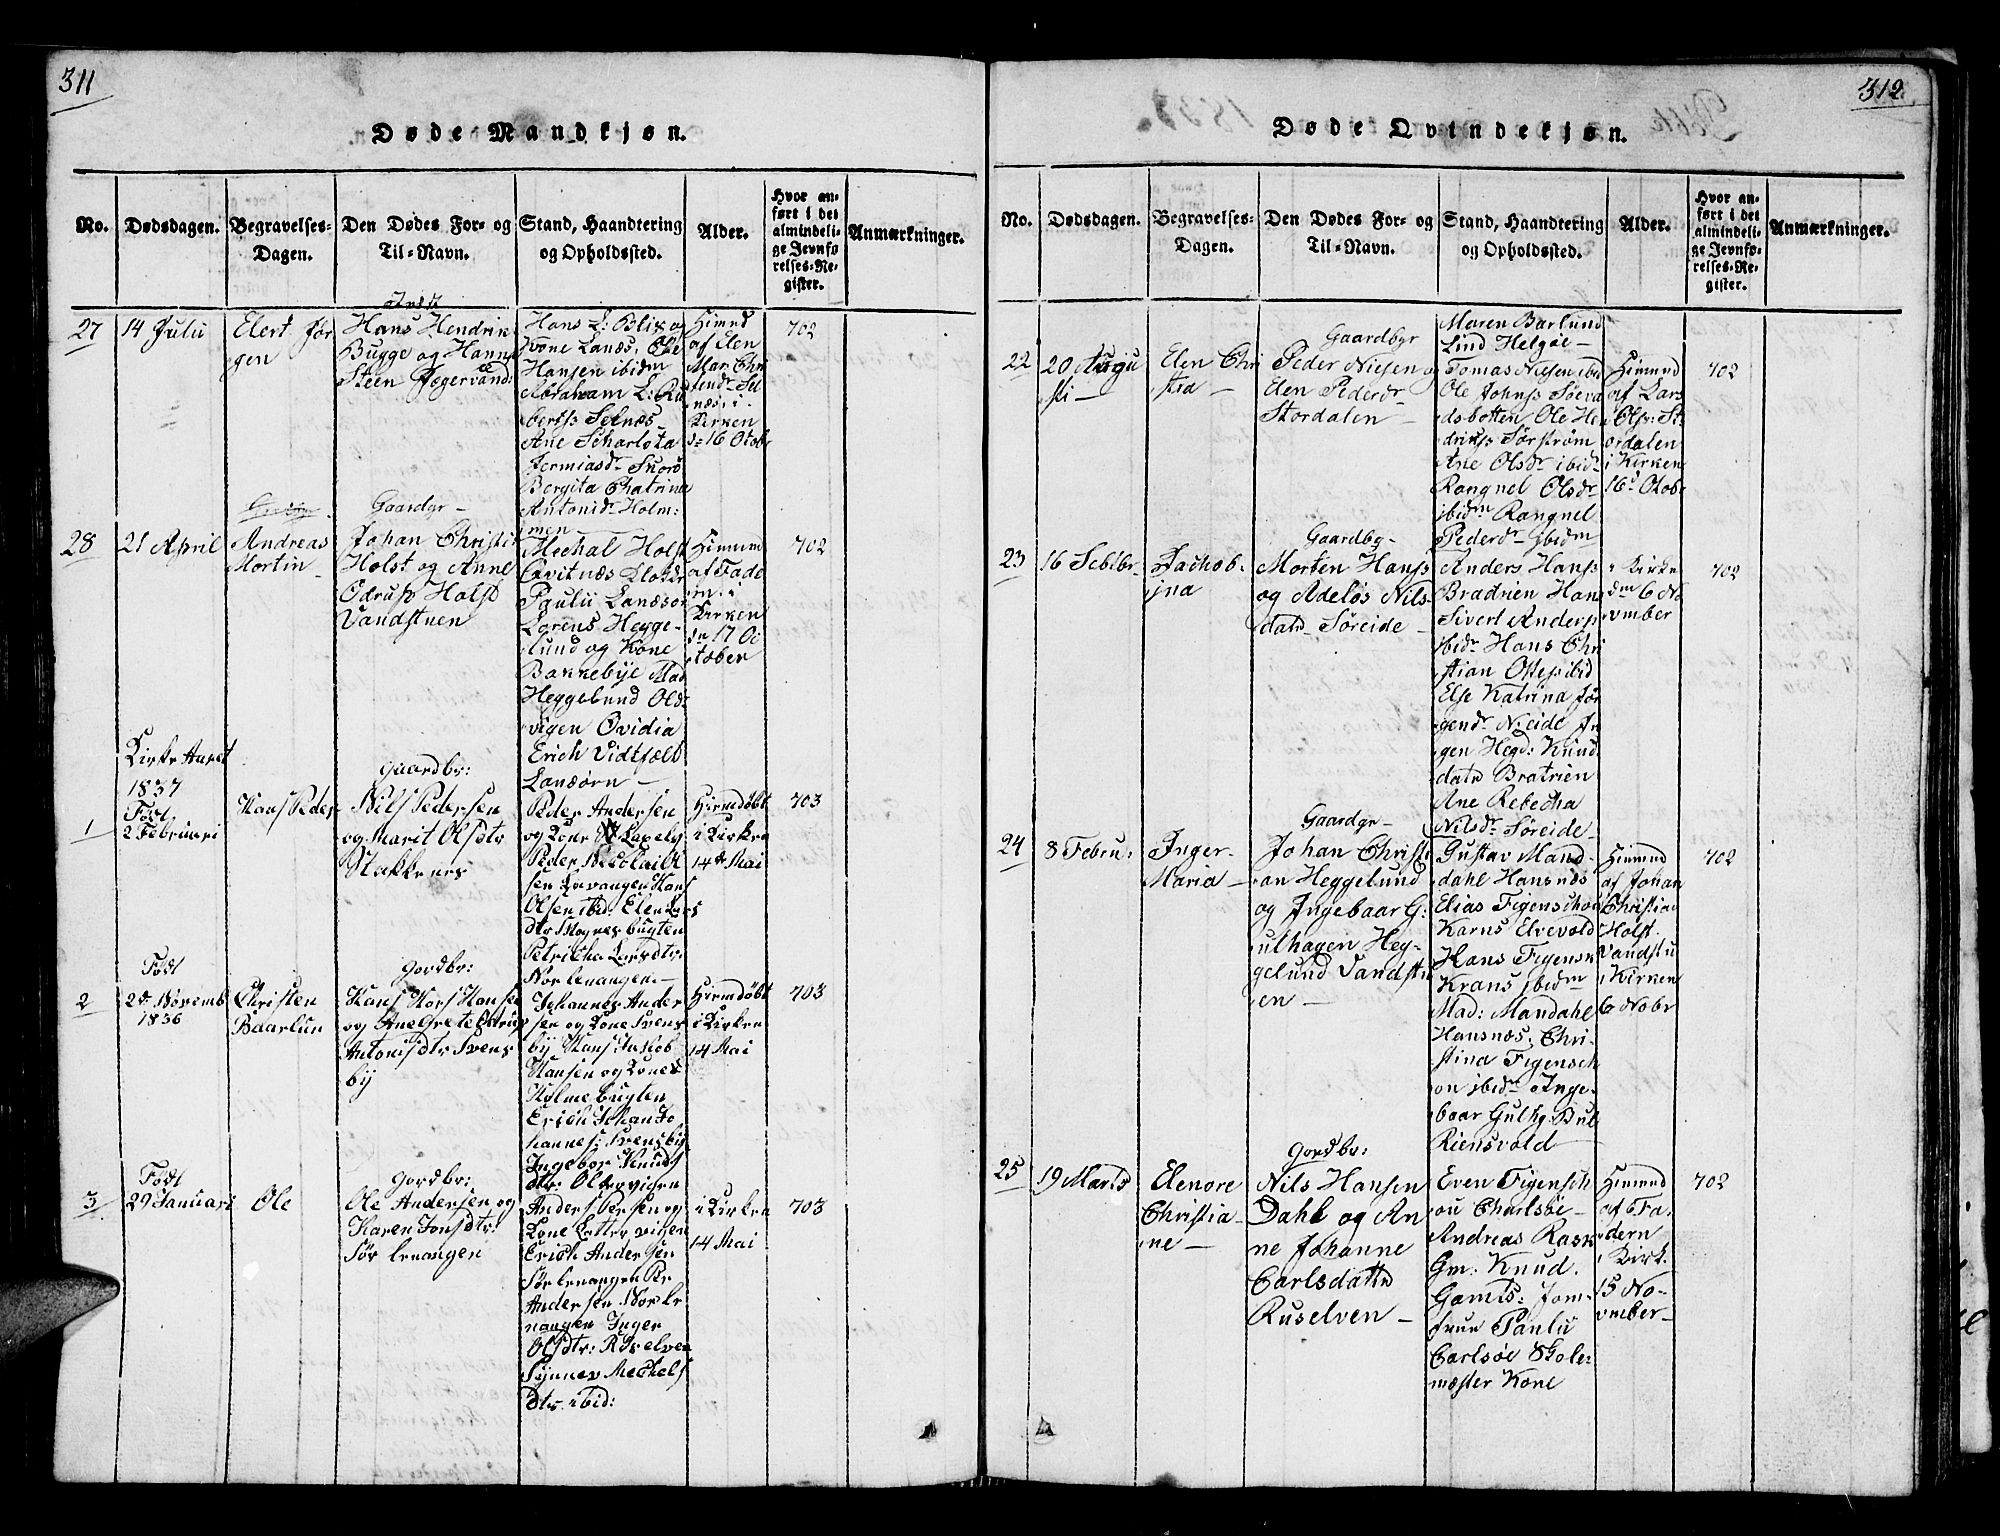 311
Døde Mandkjøn.
No.
Dødsdagen.
Begravelses-
Dagen.
Den Dødes For- og
Til-Navn.
Stand, Haandtering
og Opholdssted.
Alder.
Hvor an-
ført i det
almindeli-
ge Jevnfø-
relses-Re-
gister.
Anmærkninger.
27
14 Julii
Elert Jør
gen
Hans Hendrik
Bugge og Hanna
Steen Jægervand
Hans L: Blix og
Kone Lanæs, Ole
Hansen ibidm
Abraham L: Ru
bertss Selnæs
Ane Scharlota
Jermiasdr Snors
Bergita Chatrina
Antonidr Holm:
men
Himnd
af Elen
Mar: Chri
stendr Sel
næs, i
Kirken
dn 16 Otobr
702
28
21 April
Andreas
Mortin
Gaardgr
Johan Christi
Holst og Anne
Odrup Holst
Vandstuen
Mechal Holst
Qvitnæs Klokker
Paulii Lanæsør
Lorens Hegge-
lund og Kone
Bakkebye Mad
Heggelund Old
vigen Ovidia
Erich Vidtfælt
Lanæørn
Himmd
af Fade
rn i
Kirken
dn 17 O
ctober
702
Kirke Aaret
1837
1
Født
2 Februari
Hans Peder
Gaardbr:
Nils Pedersen
og Marit Olsdtr
Stakkenes
Peder Andersen
og Kone Laxely
Peder Nicolai
sen Kavangen Hans
Olsen ibid: Elen Lars
dtr Mognes bugten
Petricka Larsdtr
Nor lenangen
Hiemdøbt
i Kirken
14de Mai
703
2
Født
2de Novemb
1836
Christen
Baarlun
Gordbr:
Hans Hors Hanse
og Ane Grete Ostrup
Antonisdtr Svens
by
Johannes Ander
sen og Kone Svens
by Hans Jakob
Hansen og Kone
Holme bugten
Erich Johan Jo
hannes: Svensby
Ingebor Knuds
dtr Oldervigen
Hiemdøbt
i Kirken
14 Mai
703
3
Født
29 Januari
Ole
Gordbr:
Ole Andersen og
Karen Jonsdtr
Sør lenangen
Anders Persen og
Kone Latter vigen
Erich Andersen
Sør lenangen Per
Andersen Nor le
nangen Inger
Olsdtr: Riselven
Synnev Mechels
dtr ibid:
i Kirken
14 Mai
703
312
Døde Qvindekjøn.
No.
Dødsdagen.
Begravelses-
Dagen.
Den Dødes For- og
Til-Navn.
Stand, Haandtering
og Opholdssted.
Alder.
Hvor an-
ført i det
almindeli-
ge Jevnfø-
relses-Re-
gister.
Anmærkninger.
22
20 Augu
sti
Elen Chri
stia
Gaardbgr
Peder Nielsen og
Elen Pederdr
Stordalen
Maren Barlund
Lind Helgøe
Tomas Nielsen ibid
Ole Johnss Søeva
dsbotten Ole He
driksss Sørstrøm
Ane Olsdr ibidr
Rangnel Olsdr
ibidm Rangnel
Pederdr ibidm
Himmd
af Lars
Olss: St
ordalen
i Kirken
16 Otobr
702
23
16 Sebtbr
Jachob-
ina
Gaardbg
Morten Hanss
og Adeløs Nils-
datr Søreide
Anders Hanss
Bradrien Hans
Sivert Anderss
ibidr Hans Chri
stian Olless ibid
Else Katrina Jør
gendr N:eide In
gen Hegd: Knud
datr Bratrien
Ane Rebecha
Nilsdr Søreide
i Kirke
dm 6 No
vmber
702
24
8 Febru:
Inger
Maria
Gaardgr
Johan Christi
an Heggelund
og Ingebaar G:
ulhagen Heg-
gelund Vandstu
en
Gustav Mand-
dahl Hansnæs
Elias Figenschou
Karns Elvevold
Hans Figensk
Krans ibidm
Mad: Mandahl
Hansnæs, Chri-
stina Figensch
on ibidr Inge
baar Gulhg. Bul
Riensvold
Himmd
af Johan
Christia
Holst.
Vandstu
i Kirken
6 Nobr
702
25
19 Marts
Elenore
Christia-
ne
Gordbr:
Nils Hansen
Dahl og An
ne Johanne
Carlsdatte
Ruselven
Even Figensch
ou Charlsøe
Andreas Rask
Gm: Knud.
Gamts: Jom-
frue Paulii
Carlsøe Skole
mæster Kone
Himmd
af Fa
dern
i Kirk.
15 No-
vmber
702